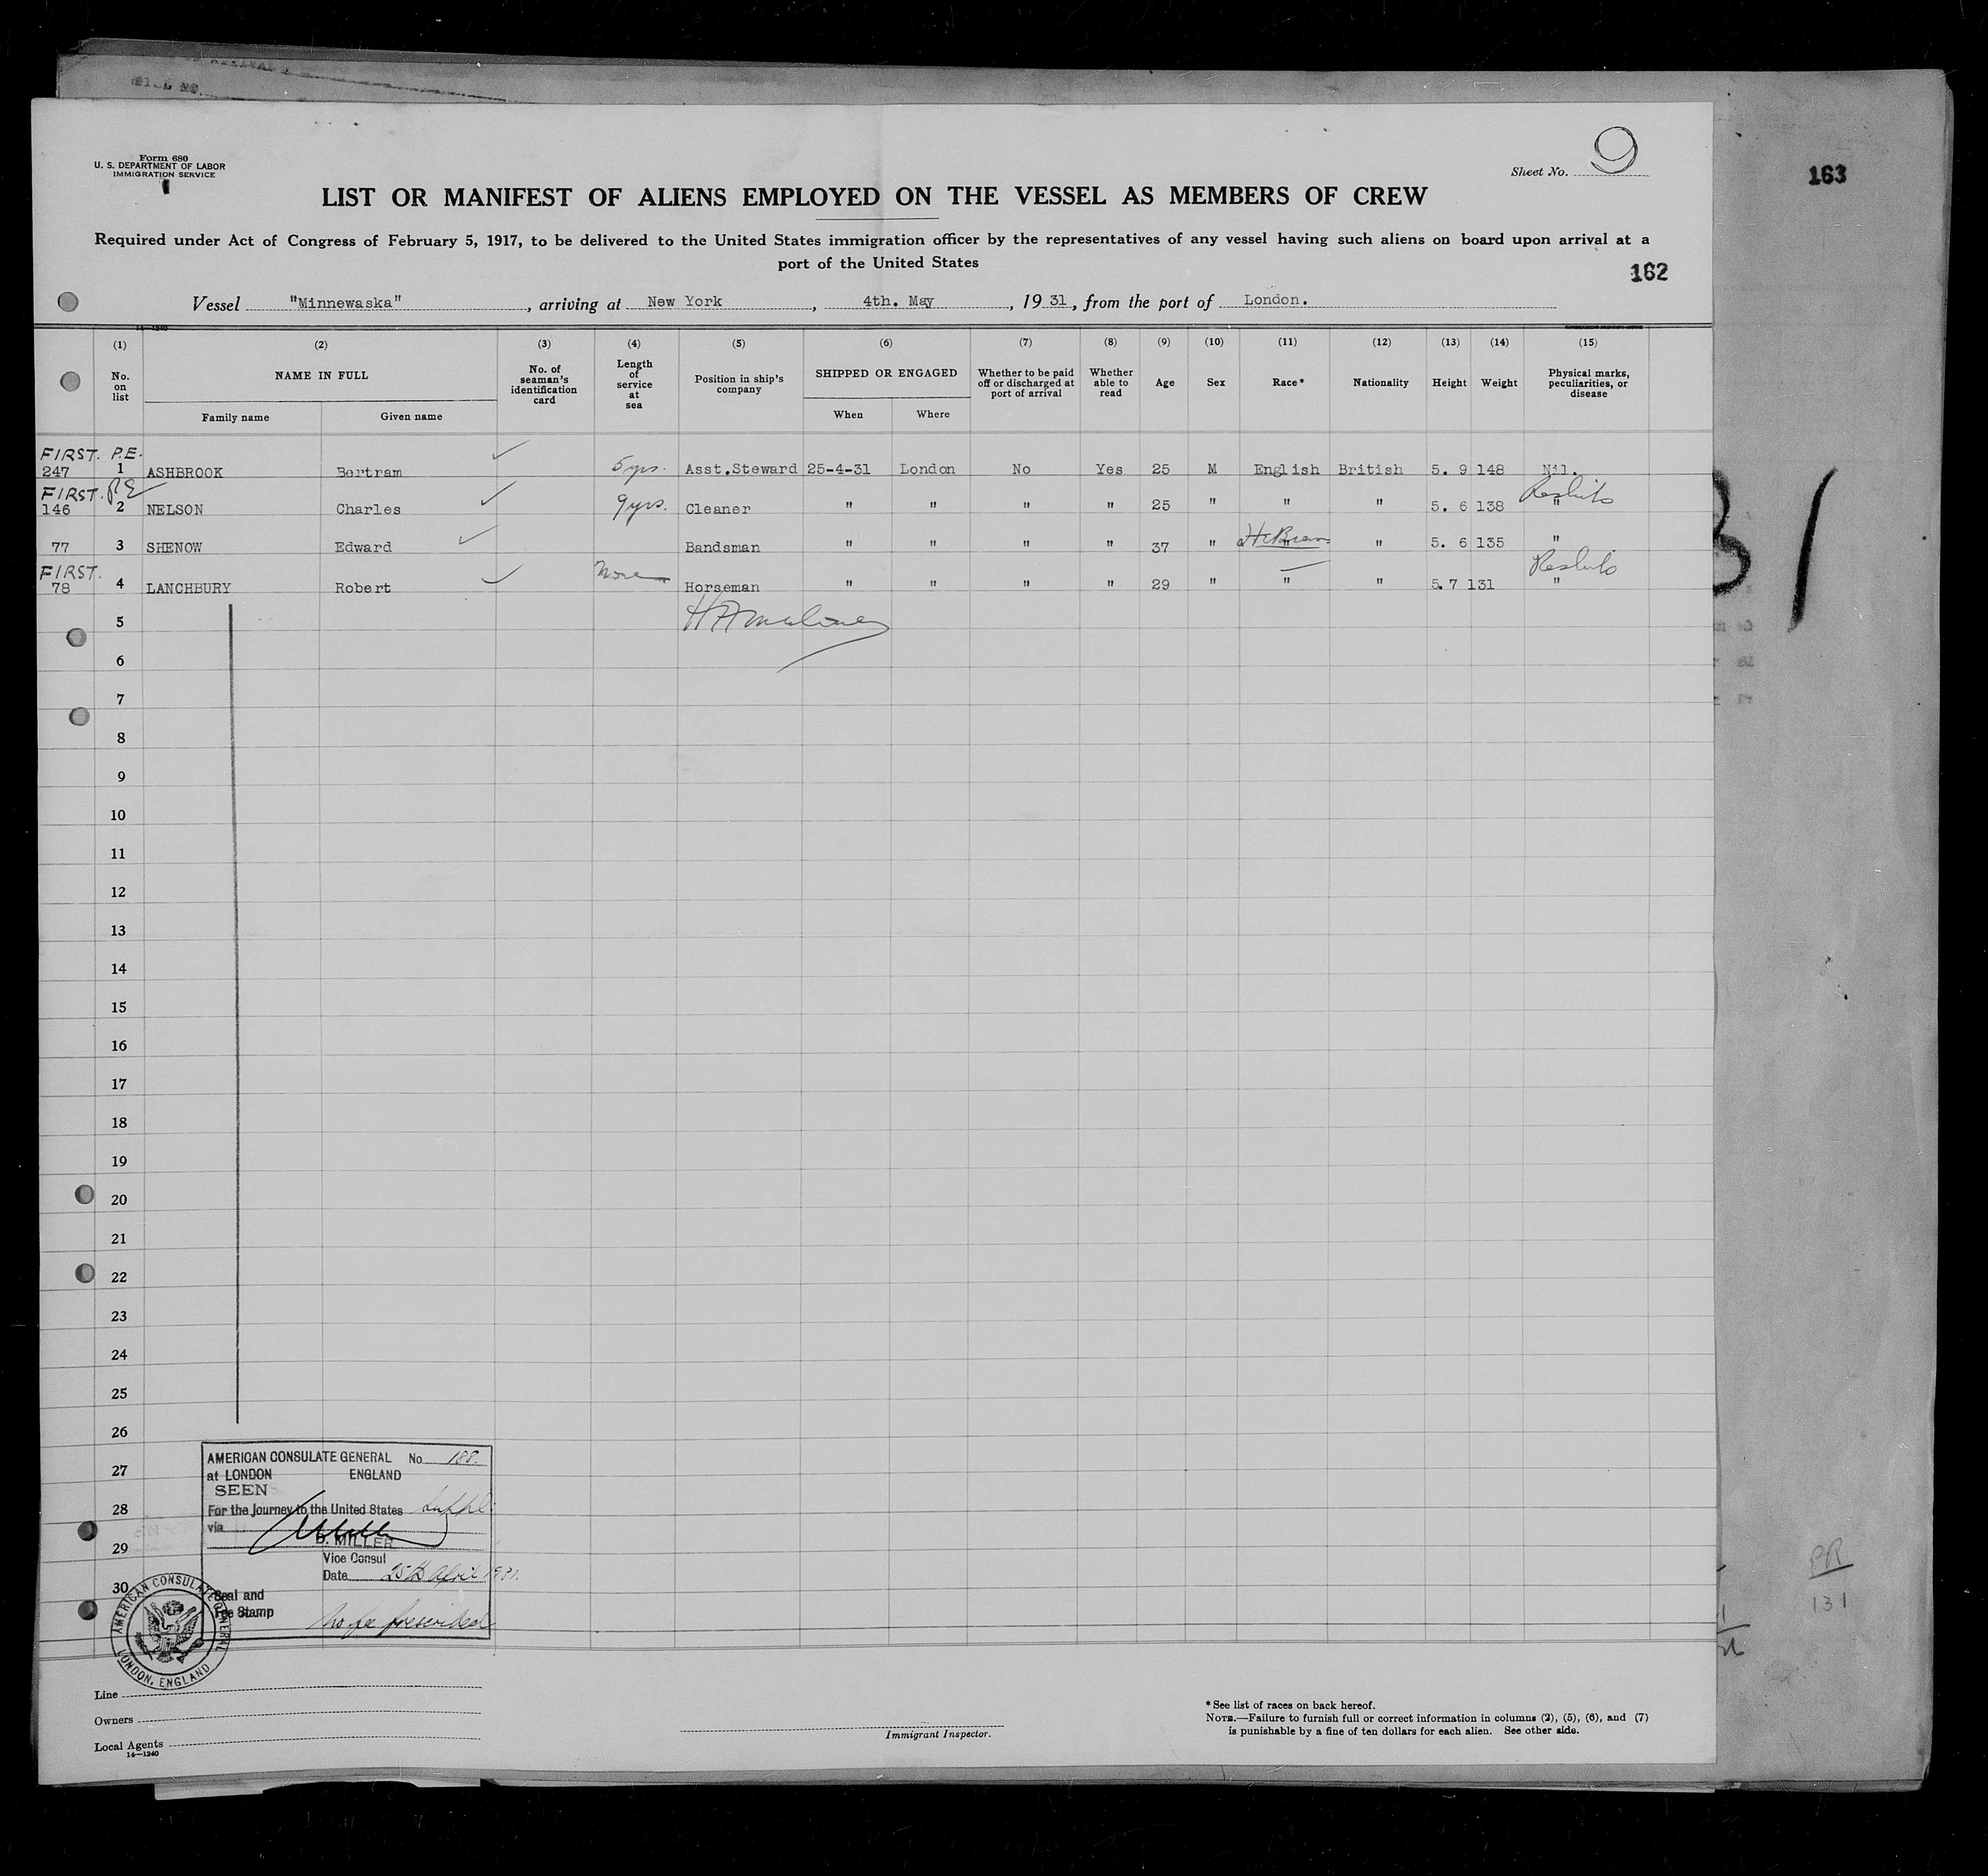 Form 680
U. S. DEPARTMENT OF LABOR
IMMIGRATION SERVICE
Sheet No. 9
163
LIST OR MANIFEST OF ALIENS EMPLOYED ON THE VESSEL AS MEMBERS OF CREW
Required under Act of Congress of February 5, 1917, to be delivered to the United States immigration officer by the representatives of any vessel having such aliens on board upon arrival at a
port of the United States
162
Vessel "Minnewaska", arriving at New York, 4th. May, 1931, from the port of London.
(1) (2) (3) (4) (5) (6) (7) (8) (9) (10) (11) (12) (13) (14) (15)
No. on list
NAME IN FULL
Family name
Given name
No. of seaman's identification card
Length of service at sea
Position in ship's company
SHIPPED OR ENGAGED
When
Where
Whether to be paid off or discharged at port of arrival
Whether able to read
Age
Sex
Race*
Nationality
Height
Weight
Physical marks, peculiarities, or disease
FIRST. P.E.
247 1 ASHBROOK Bertram 5 yrs. Asst.Steward 25-4-31 London No Yes 25 M English British 5. 9 148 Nil.
FIRST. P.E
146 2 NELSON Charles 9 yrs. Cleaner " " " " 25 " " " 5. 6 138 "
77 3 SHENOW Edward Bandsman " " " " 37 " " " 5. 6 135 "
FIRST.
78 4 LANCHBURY Robert None Horseman " " " " 29 " " " 5.7 131 "
5
6
7
8
9
10
11
12
13
14
15
16
17
18
19
20
21
22
23
24
25
26
27
28
29
30
AMERICAN CONSULATE GENERAL No 188.
at LONDON ENGLAND
SEEN
For the Journey to the United States
via
D. MILLER
Vice Consul
Date 25th April 1931.
Seal and
Fee Stamp
No fee prescribed
AMERICAN CONSULATE GENERAL
LONDON, ENGLAND
PR
131
Line
Owners
Local Agents
14—1240
Immigrant Inspector.
*See list of races on back hereof.
NOTE.—Failure to furnish full or correct information in columns (2), (5), (6), and (7)
is punishable by a fine of ten dollars for each alien. See other side.